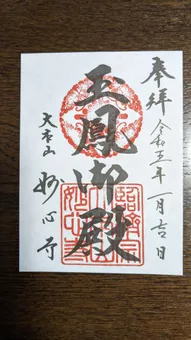 奉拝
令和五年一月吉日
玉鳳御殿
大本山
妙心寺